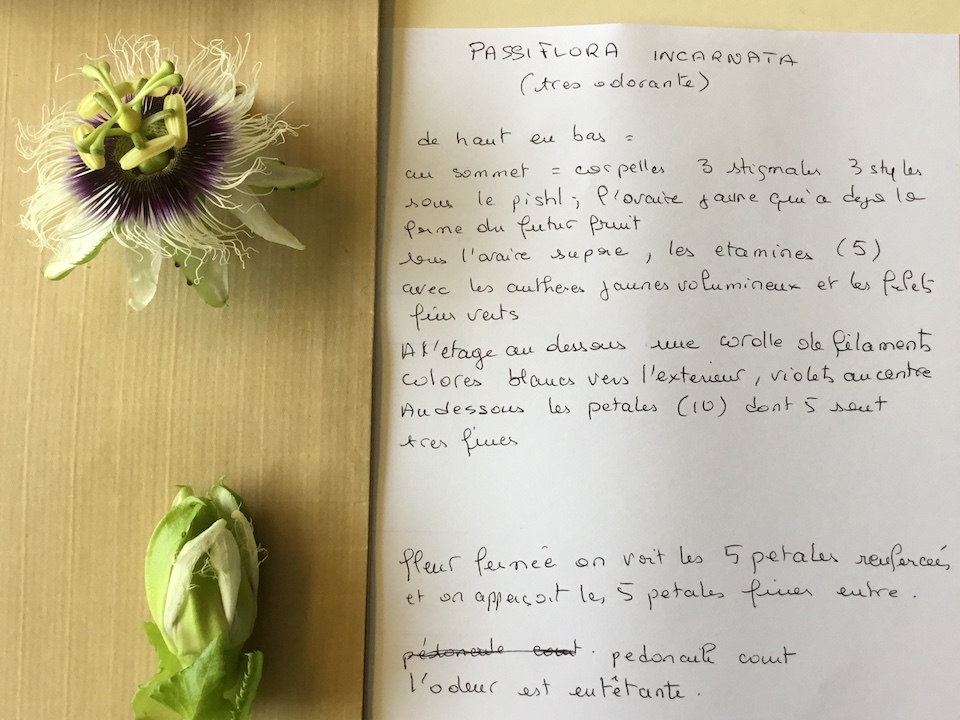 PASSIFLORA INCARNATA
(tres odorante)
de haut en bas =
au sommet = carpelles 3 stigmates 3 styles
sous le pistil ; l'ovaire jaune qui a deja la
forme du futur fruit
sous l'ovaire supere, les etamines (5)
avec les antheres jaunes volumineux et les filets
fins verts
A l'etage au dessous une corolle de filaments
colores blancs vers l'exterieur, violets au centre
Au dessous les petales (10) dont 5 sont
tres fines
fleur fermée on voit les 5 petales renforcées
et on apperçoit les 5 petales fines entre.
pédoncule court. pedoncule court
l'odeur est entêtante.